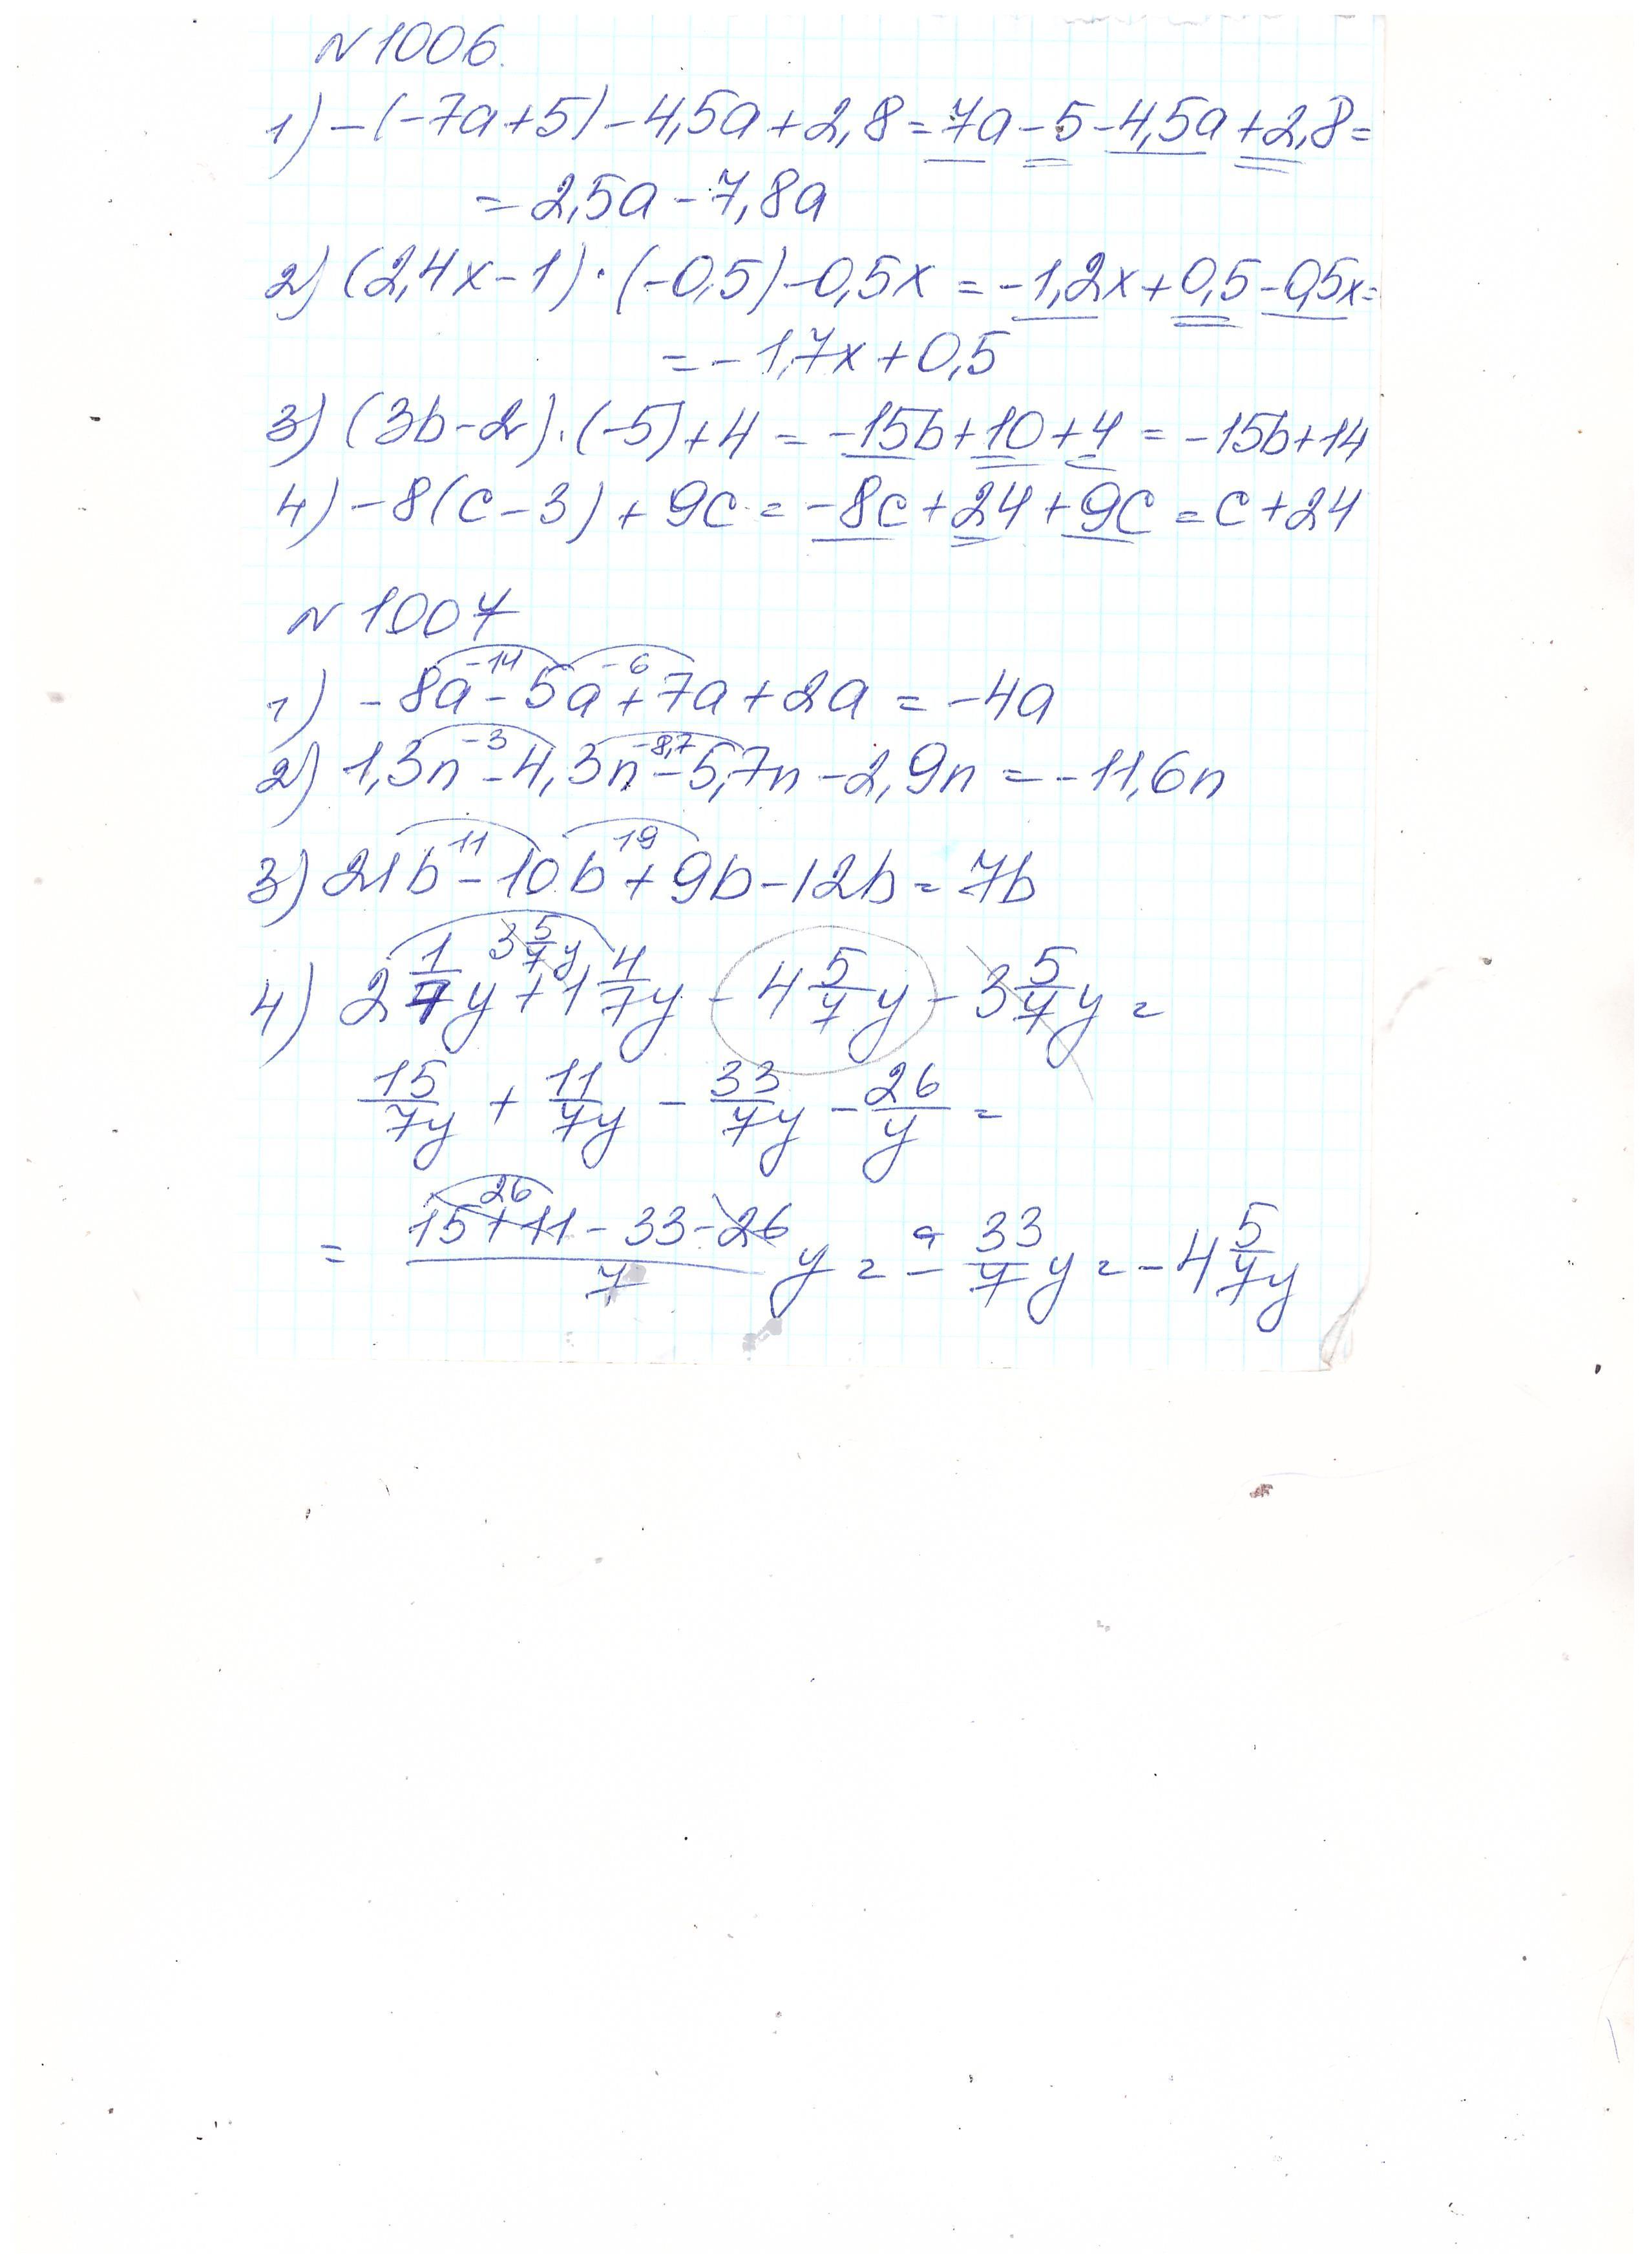 N 1006.
1) -(-7a+5)-4,5a+2,8=7a-5-4,5a+2,8=
=2,5a-7,8a
2) (2,4x-1)·(-0,5)-0,5x=-1,2x+0,5-0,5x=
=-1,7x+0,5
3) (3b-2)·(-5)+4=-15b+10+4=-15b+14
4) -8(c-3)+9c=-8c+24+9c=c+24
N 1007
-14 -6
1) -8a-5a+7a+2a=-4a
-3 -8,7
2) 1,3n-4,3n-5,7n-2,9n=-11,6n
11 19
3) 21b-10b+9b-12b=7b
3 5/7 y
4) 2 1/7 y+1 4/7 y-4 5/7 y-3 5/7 y=
15/7y + 11/7y - 33/7y - 26/y =
26
= 15+11-33-26/7 y = - 33/7 y = -4 5/7 y